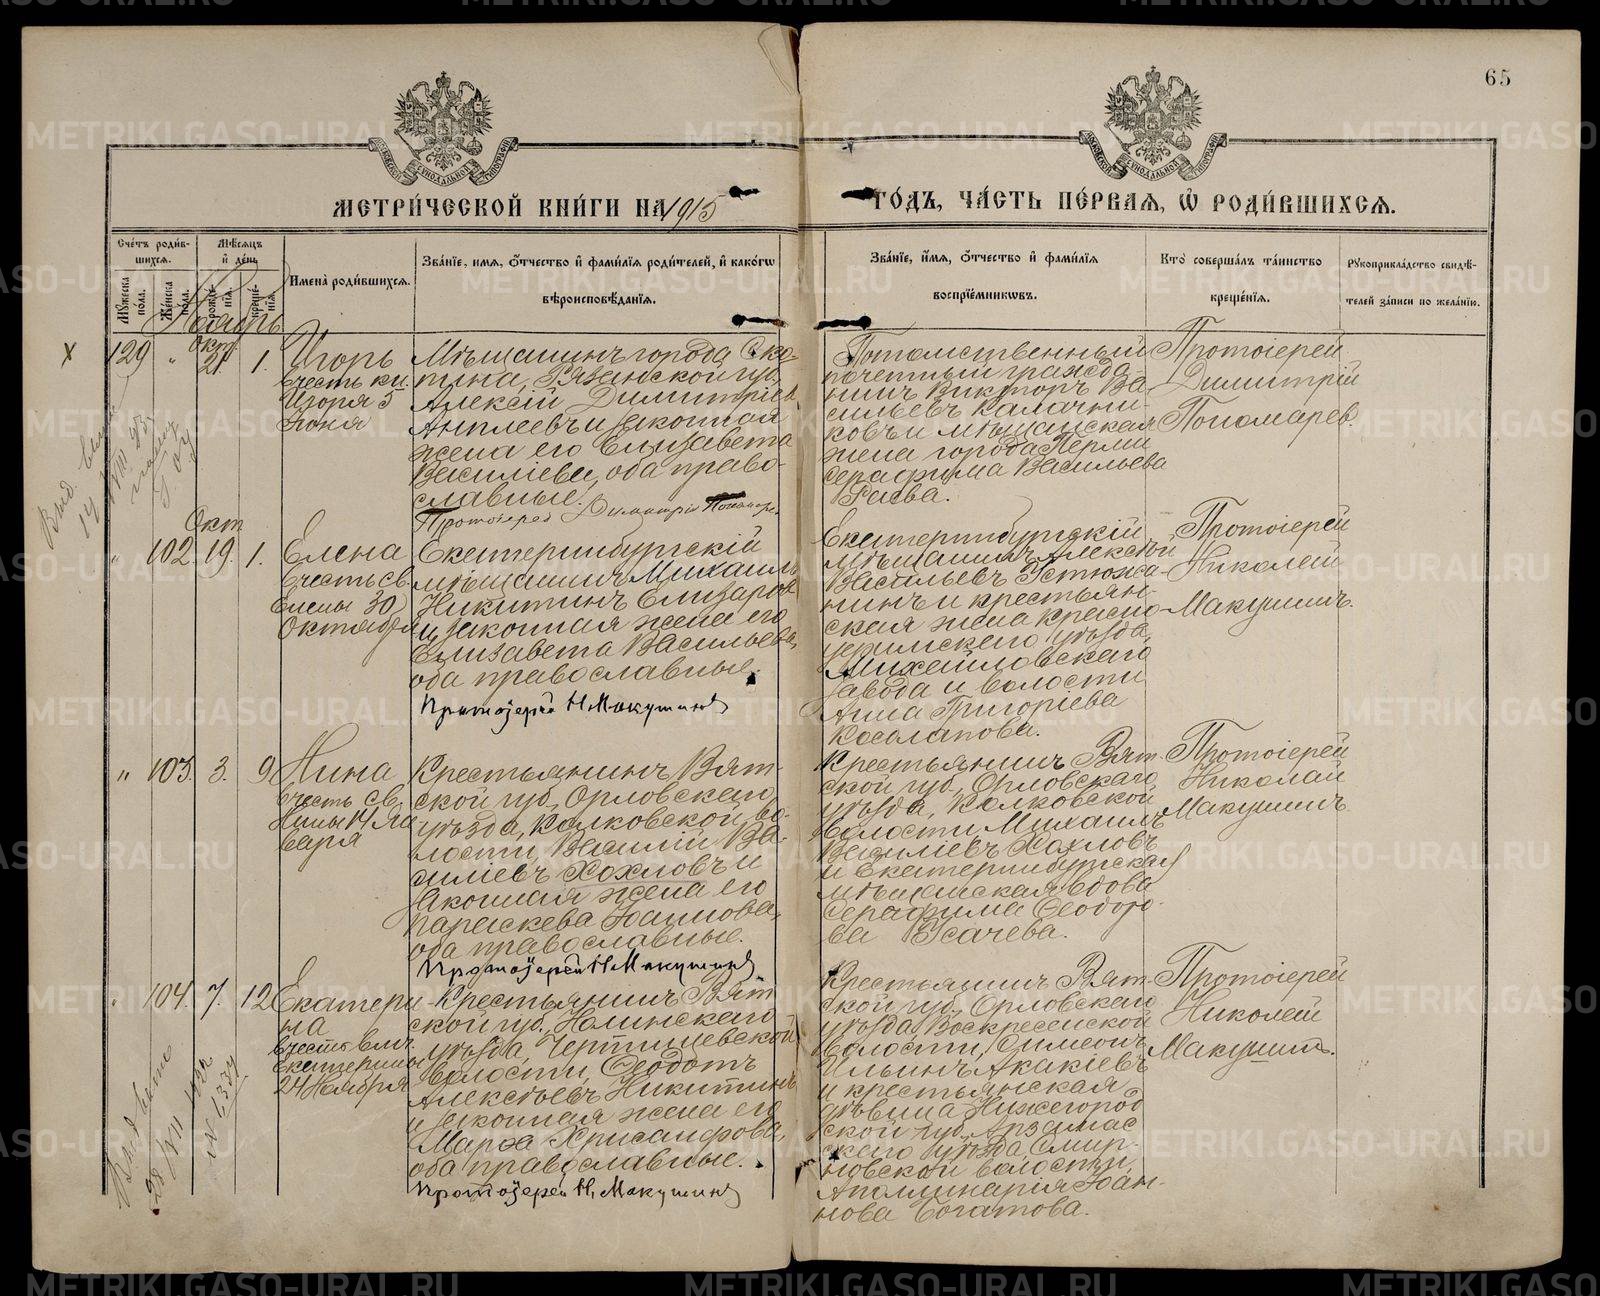 65
МЕТРИ́ЧЕСКОЙ КНИ́ГИ НА 1915 ГО́ДЪ, ЧА́СТЬ ПЕ́РВАѦ, Ѽ РОДИ́ВШИХСѦ.
Сче́тъ роди́вшихсѧ.
Мꙋ́жеска по́ла.
Же́нска по́ла.
Мѣ́сѧцъ и҆ де́нь
рожде́нїѧ.
креще́нїѧ.
И҆мена̀ роди́вшихсѧ.
Зва́нїе, и҆мѧ, ѻ҆́тчество и҆ фами́лїѧ роди́телей, и҆ како́гѡ
вѣроисповѣ́данїѧ.
Зва́нїе, и҆́мѧ, ѻ҆́тчество и҆ фами́лїѧ
воспрїе́мникѡвъ.
Кто̀ соверша́лъ та́инство
креще́нїѧ.
Рꙋкоприкла́дство свидѣ́телей за́писи по жела́нїю.
Ноябрь
129 " Окт. 21 1.
Игорь
въ честь кн.
Игоря 5
Іюня
Мѣщанинъ города Ско-
пина, Рязанской губ.,
Алексій Димитріев
Антеевъ и законная
жена его Елизавета
Василіева, оба право-
славные.
Протоіерей Димитрій Пономарев
Потомственный
почетный гражда-
нинъ Викторъ Ва-
сильевъ Калачни-
ковъ и мѣщанская
жена города Перми
Серафима Васильева
Раева.
Протоіерей
Димитрій
Пономарев.
" 102. Окт 19. 1.
Елена
въ честь св.
Елены 30
Октября
Екатеринбургскій
мѣщанинъ Михаилъ
Никитинъ Елизаров
и законная жена его
Елизавета Васильева,
оба православные.
Протоіерей Н Макушинъ
Екатеринбургскій
мѣщанинъ Алексѣй
Васильевъ Устюжа-
нинъ и крестьян-
ская жена Красно-
уфимскаго уѣзда,
Михайловскаго
завода и волости
Анна Григоріева
Косолапова.
Протоіерей
Николай
Макушинъ.
" 103. 3. 9
Нина
въ честь св.
Нины 14 Ян
варя
Крестьянинъ Вят-
ской губ., Орловскаго
уѣзда, Колковской во-
лости, Василій Ва-
силіевъ Хохловъ и
законная жена его
Параскева Іоаннова,
оба православные.
Протоіерей Н Макушинъ
Крестьянинъ Вят-
ской губ., Орловскаго
уѣзда, Колковской
волости Михаилъ
Василіевъ Хохловъ
и Екатеринбургская
мѣщанская вдова
Серафима Ѳеодоро-
ва Усачева.
Протоіерей
Николай
Макушинъ
" 104. 7. 12
Екатери
на
въ честь влмч.
Екатерины
24 Ноября
Крестьянинъ Вят-
ской губ., Нолинскаго
уѣзда, Чертищевской
волости, Ѳеодотъ
Алексѣевъ Никитинъ
и законная жена его
Марѳа Хрисанфова,
оба православные.
Протоіерей Н. Макушинъ
Крестьянинъ Вят-
ской губ., Орловскаго
уѣзда Воскресенской
волости, Симеонъ
Ильинъ Акакіевъ
и крестьянская
дѣвица Нижегород
ской губ. Арзамас
скаго уѣзда, Смир-
новской волости,
Аполлинарія Іоан-
нова Богатова.
Протоіерей
Николай
Макушинъ.
METRIKI.GASO-URAL.RU